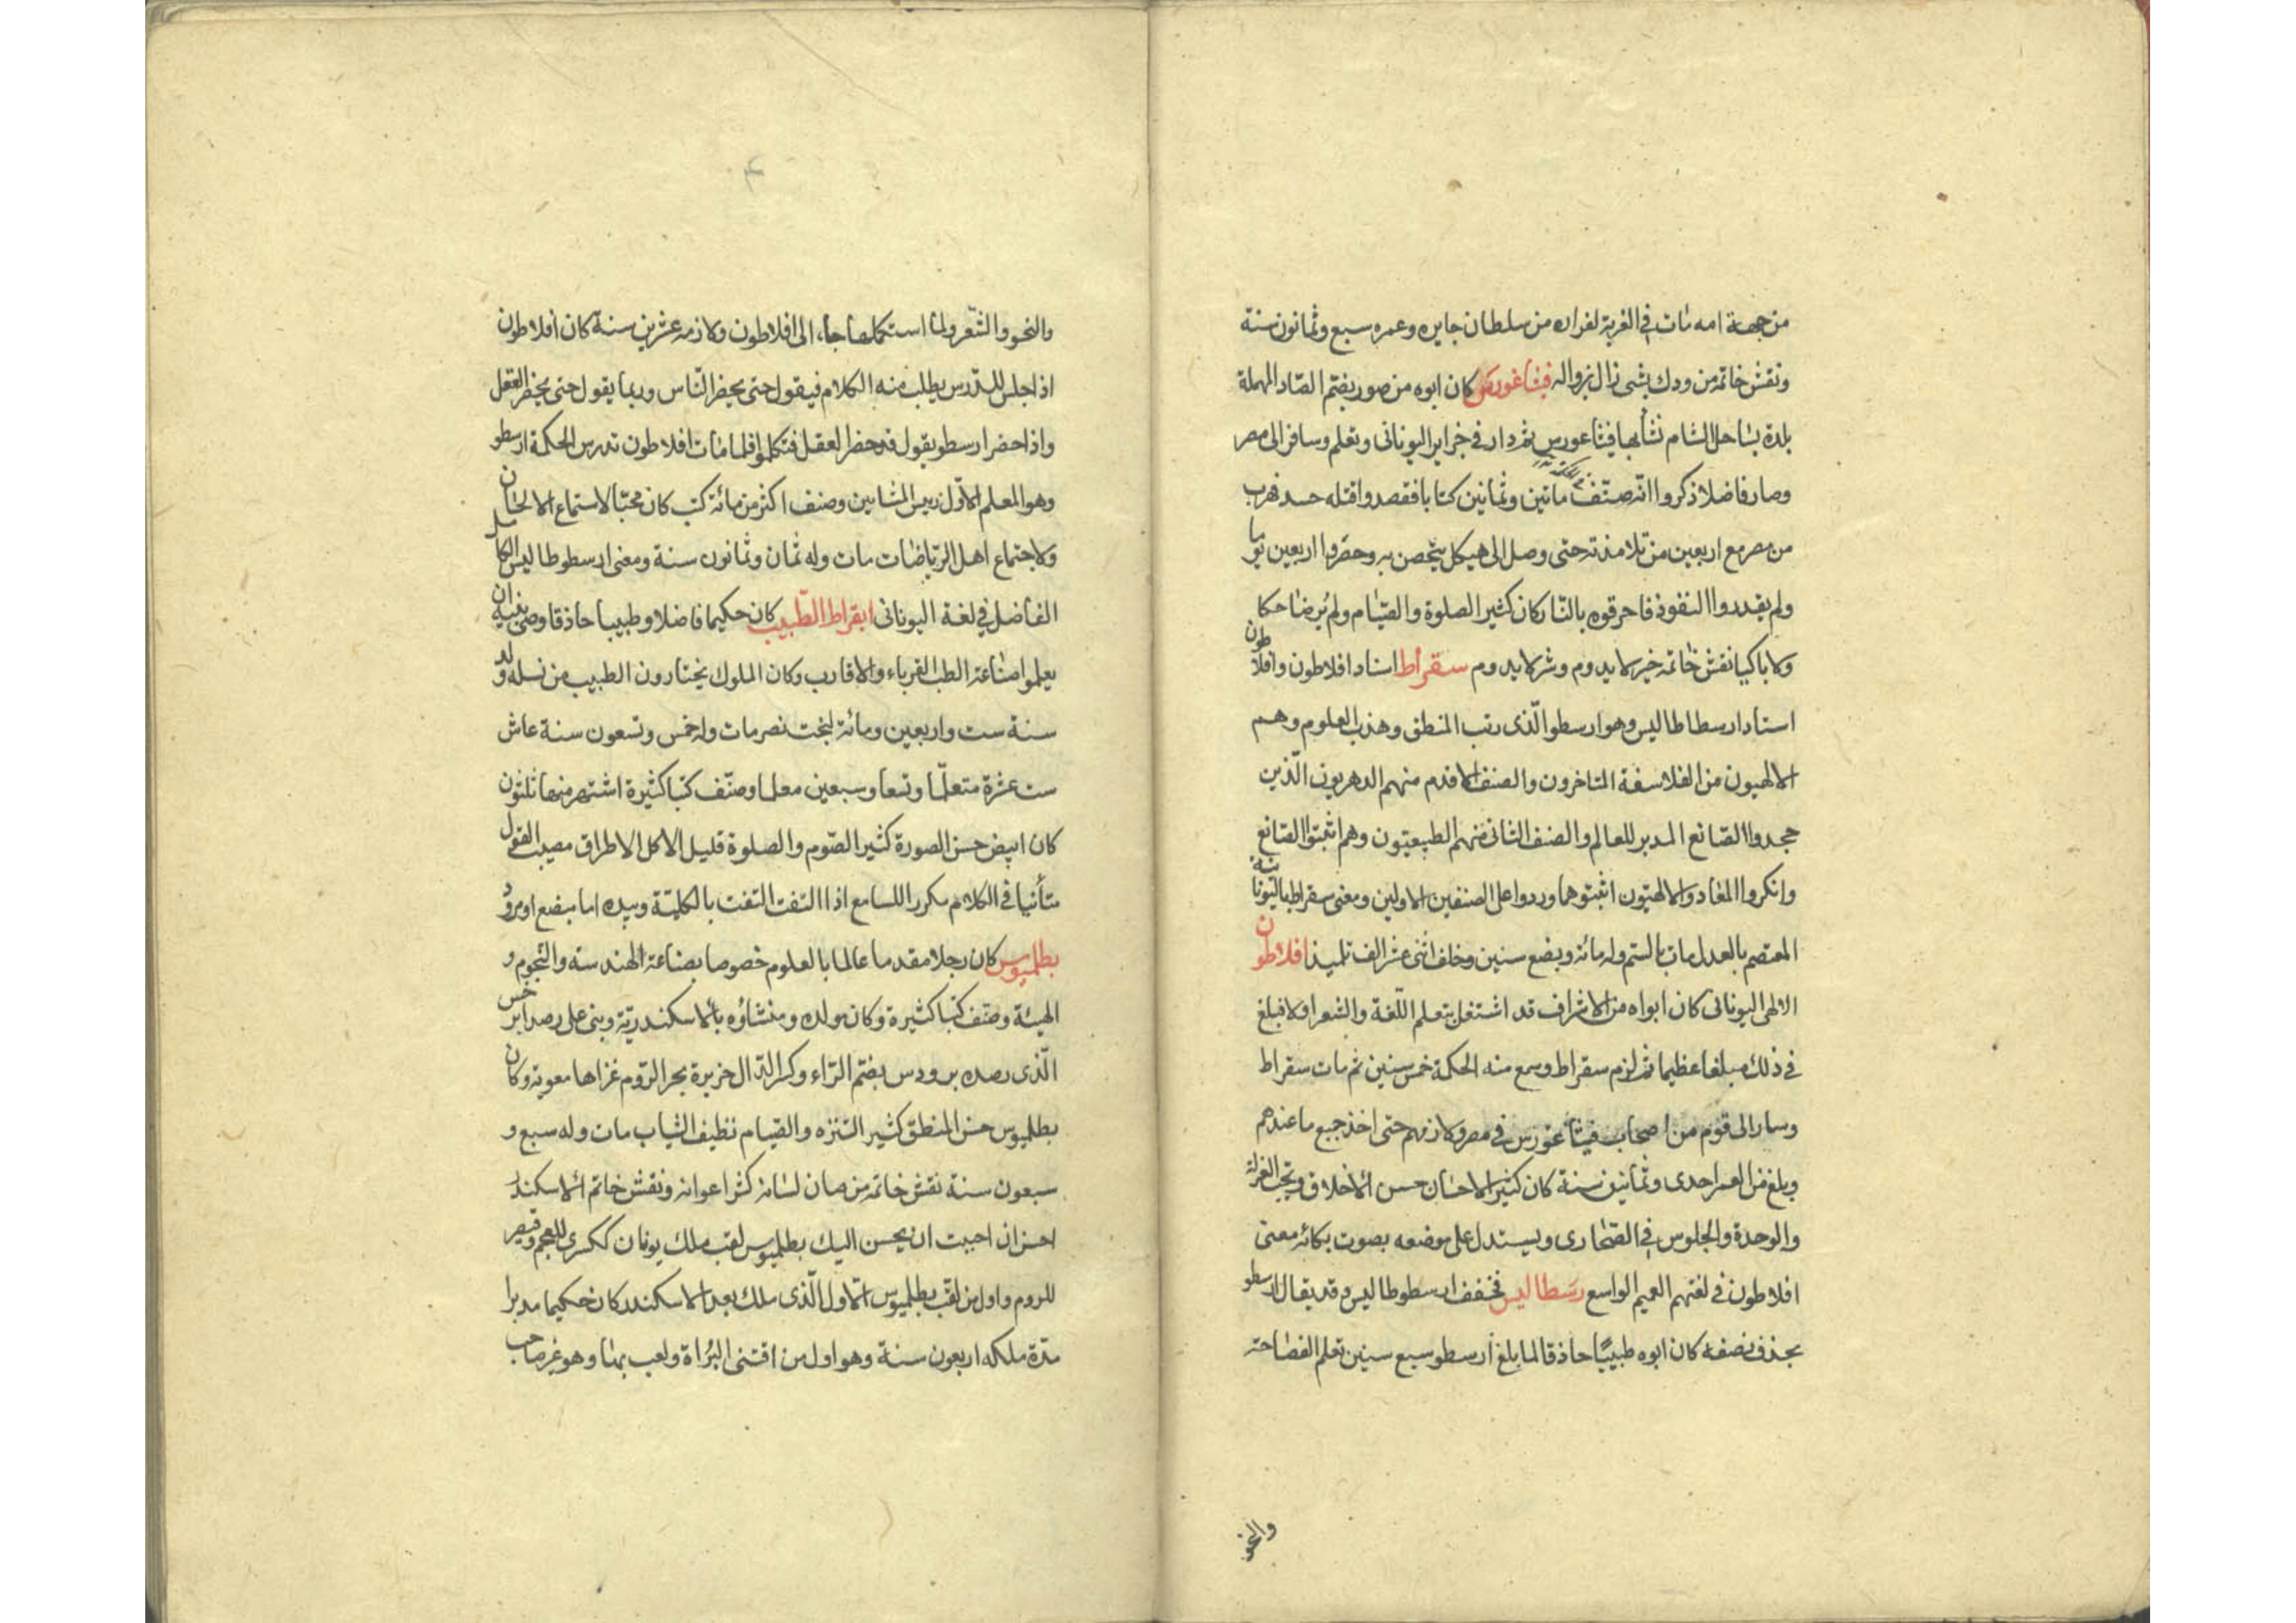 من جهة امه مات في الغربة لفراره من سلطان جايره وعمره سبع وثمانون سنة
ونقش خاتمه من ودك بشى زال بزواله فيثاغورس كان ابوه من صور بضم الصاد المهملة
بلدة بساحل الشام نشأ بها فيثاغورس ثم دار في جزاير اليونانى وتعلم وسافر الى مصر
وصار فاضلا ذكروا انه صنف مأتين وثمانين كتابا فقصدوا قتله حسد فهرب
من مصر مع اربعين من تلامذته حتى وصل الى هيكل يتحصن به وحضروا اربعين يوما
ولم يقدروا النفوذ فاحرقوه بالنار كان كثير الصلوة والصيام ولم يُر ضاحكا
ولا باكيا نقش خاتمه خير لا يدوم وشر لا يدوم سقراط استاد افلاطون وافلاطون
استاد ارسطاطاليس وهو ارسطو الّذى رتب المنطق وهذب العلوم وهم
الالهيون من الفلاسفة المتاخرون والصنف الاقدم منهم الدهريون الّذين
جحدوا الصانع المدبر للعالم والصنف الثانى منهم الطبيعيون وهم اثبتوا الصانع
وانكروا المعاد والالهيّون اثبتوهما وردوا على الصنفين الاولين ومعنى سقراط باليونانية
المعتصم بالعدل مات بالسم وله مائة وبضع سنين وخلف اثنى عشر الف تلميذ افلاطون
الالهى اليونانى كان ابواه من الاشراف قد اشتغل بتعلم اللّغة والشعر اولا فبلغ
في ذلك مبلغا عظيما ثم لزم سقراط وسمع منه الحكمة خمس سنين ثم مات سقراط
وسار الى قوم من اصحاب فيثاغورس في مصر ولازمهم حتى اخذ جميع ما عندهم
وبلغ من العمر احدى وثمانين سنة كان كثير الاحسان حسن الاخلاق ويحب العزلة
والوحدة والجلوس في الصحارى ويستدل على موضعه بصوت بكائه معنى
افلاطون في لغتهم العميم الواسع رسطاليس مخفف ارسطوطاليس وقد يقال ارسطو
بحذف نصفه كان ابوه طبيبًا حاذقا لما بلغ ارسطو سبع سنين تعلم الفصاحة
والنحو
والنحو والشّعر ولما استكملها جاء الى افلاطون ولازمه عشرين سنة كان افلاطون
اذا جلس للدرس يطلب منه الكلام فيقول حتى يحضر النّاس وربما يقول حتى يحضر العقل
واذا حضر ارسطو يقول قد حضر العقل فتكلموا فلما مات افلاطون تدرس الحكمة ارسطو
وهو المعلم الاوّل رييس المشايين وصنف اكثر من مائة كتب كان محبّا لاستماع الالحان
ولاجتماع اهل الرياضات مات وله ثمان وثمانون سنة ومعنى ارسطوطاليس الكامل
الفاضل في لغة اليونانى ابقراط الطّبيب كان حكيما فاضلا وطبيبا حاذقا وصى بنيه ان
يعلموا صناعة الطب الغرباء والاقارب وكان الملوك يختارون الطبيب من نسله ولد
سنة ست واربعين ومائة لبخت نصر مات وله خمس وتسعون سنة عاش
ست عشرة متعلّما وتسعا وسبعين معلما وصنّف كتبا كثيرة اشتهر منها ثلثون
كان ابيض حسن الصورة كثير الصّوم والصلوة قليل الاكل الاطراق مصيب القول
متأنيا في الكلام مكررا للسامع اذا التفت التفت بالكليّة وبيده اما مبضع او مرود
بطلميوس كان رجلا مقدما عالما بالعلوم خصوصا بصناعة الهندسة والنّجوم و
الهيئة وصنّف كتبا كثيرة وكان مولده ومنشاؤه بالاسكندريّة وبنى على رصد ابرخس
الّذى رصده برودس بضم الرّاء وكسر الدّال جزيرة بحر الرّوم غزاها معوية وكان
بطلميوس حسن المنطق كثير التنزه والصّيام نظيف الثياب مات وله سبع و
سبعون سنة نقش خاتمه من صان لسانه كثر اعوانه ونقش خاتم الاسكندر
احسن ان احببت ان يحسن اليك بطلميوس لقب ملك يونان ككسرى للعجم وقيصر
للروم واول من لقب بطلميوس الاول الّذى ملك بعد الاسكندر كان حكيما مدبرا
مدّة ملكه اربعون سنة وهو اول من اقتنى البُزاة ولعب بها وهو غير صاحب